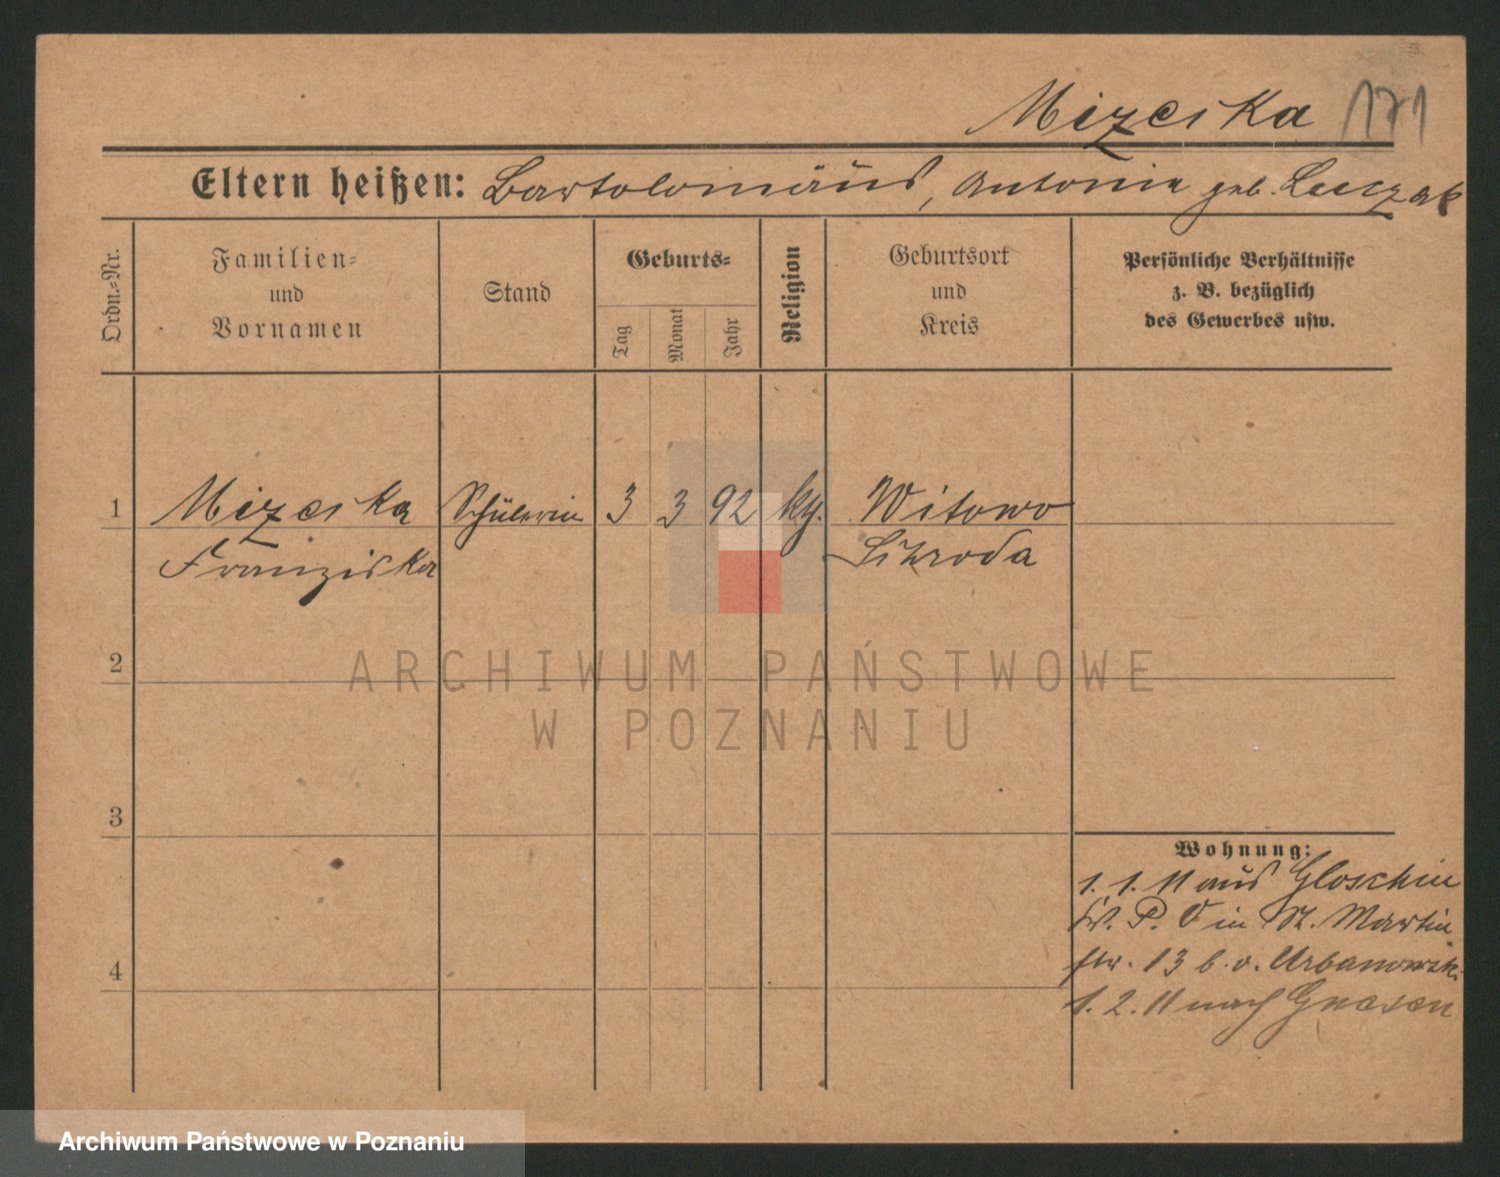 Mizerska 171
Eltern heißen: Bartolomäus, Antonie geb. Luczak
Ordn.-Nr.
Familien-
und
Vornamen
Stand
Geburts-
Tag
Monat
Jahr
Religion
Geburtsort
und
Kreis
Persönliche Verhältnisse
z. B. bezüglich
des Gewerbes usw.
1 Mizerska Schülerin 3 3 92 kg. Witowo
Franziska Schroda
2
3
4
Wohnung:
1. 1. 11 aus Gloschin
P. in St. Martin
str. 13 b. v. Urbanowski
1. 2. 11 nach Gnesen
ARCHIWUM PAŃSTWOWE
W POZNANIU
Archiwum Państwowe w Poznaniu